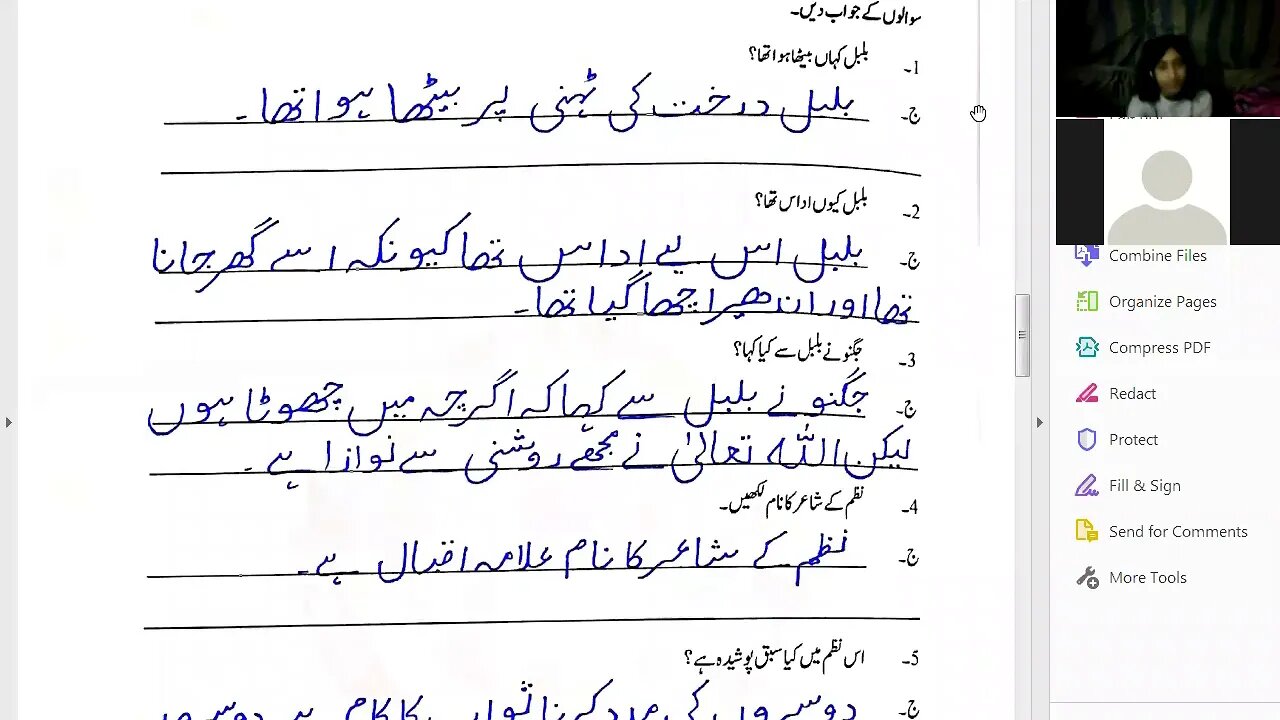 سوالوں کے جواب دیں۔
1۔ بلبل کہاں بیٹھا ہوا تھا؟
ج۔ بلبل درخت کی ٹہنی پر بیٹھا ہوا تھا۔
2۔ بلبل کیوں اداس تھا؟
ج۔ بلبل اس لیے اداس تھا کیونکہ اسے گھر جانا
تھا اور اندھیرا چھا گیا تھا۔
3۔ جگنو نے بلبل سے کیا کہا؟
ج۔ جگنو نے بلبل سے کہا کہ اگرچہ میں چھوٹا ہوں
لیکن اللہ تعالیٰ نے مجھے روشنی سے نوازا ہے۔
4۔ نظم کے شاعر کا نام لکھیں۔
ج۔ نظم کے شاعر کا نام علامہ اقبال ہے۔
5۔ اس نظم میں کیا سبق پوشیدہ ہے؟
ج۔ دوسروں کی مدد کرنا ثواب کا کام ہے دوسروں
Combine Files
Organize Pages
Compress PDF
Redact
Protect
Fill & Sign
Send for Comments
More Tools